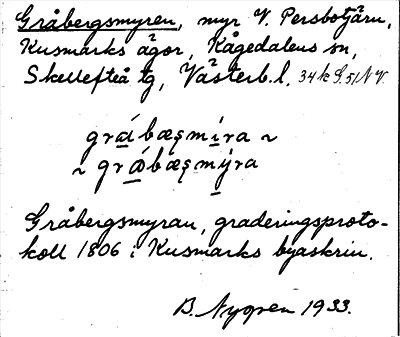 Gråbergsmyren, myr V. Persbotjärn,
Kusmarks ägor, Kågedalens sn,
Skellefteå tg, Västerb. l. 34k S. 51 NV.
grǽbæsmíra ~
~ grǿbæsmýra
Gråbergsmyran, graderingsproto-
koll 1806 i Kusmarks byaskrin.
B. Nygren 1933.